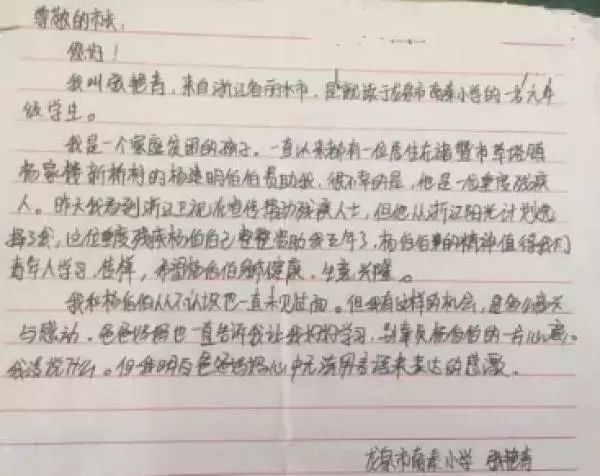 尊敬的市长,
您好!
我叫张艳青,来自浙江省丽水市,是就读于龙泉市南秦小学的一名六年
级学生。
我是一个家庭贫困的孩子。一直以来都有一位居住在诸暨市草塔镇
杨家楼新桥村的杨建明伯伯资助我,很不幸的是,他是一位重度残疾
人。昨天我看到浙江卫视在宣传帮助残疾人士,但他从浙江阳光计划选
择了我,这位重度残疾杨伯伯自己整整资助我五年了,杨伯伯的精神值得我们
青年人学习、榜样,希望杨伯伯身体健康、生意兴隆。
我和杨伯伯从不认识也一直未见过面。但我有这样的机会,是多么高兴
与感动。爸爸妈妈也一直告诉我让我好好学习,别辜负杨伯伯的一片心意。
我没说什么。但我明白爸爸妈妈心中无法用言语来表达的感激。
龙泉市南秦小学 张艳青